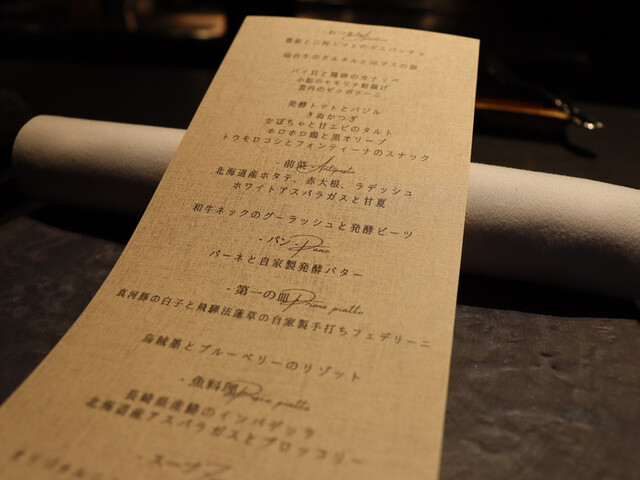 - おつまみ
パイ貝と雑穀のカナッペ
小鮎のセモリナ粉揚げ
発酵トマトとバジル
きぬかつぎ
かぼちゃと甘エビのタルト
ホロホロ鶏と黒オリーブ
トウモロコシとフォンティーナのスナック
- 前菜 - Antipasto
北海道産ホタテ、赤大根、ラデッシュ
ホワイトアスパラガスと甘夏
和牛ネックのグーラッシュと発酵ビーツ
- パン - Pane
パーネと自家製発酵バター
- 第一の皿 - Primo piatto
真河豚の白子と飛騨法蓮草の自家製手打ちフェデリーニ
烏賊墨とブルーベリーのリゾット
- 魚料理 piatto
長崎県産 のインパデッラ
北海道産アスパラガスとブロッコリー
- スープ